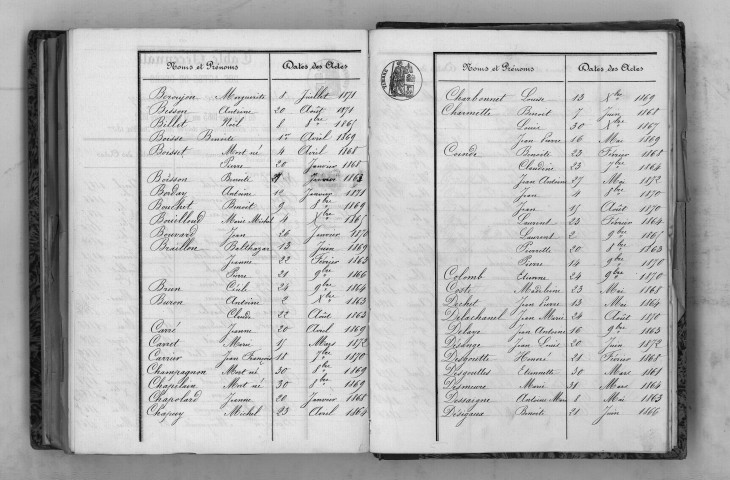 Noms et Prénoms Dates des Actes
Beroujon Marguerite 1 Juillet 1871
Besson Antoine 20 Août 1871
Billet Noël 8 8bre 1867
Boisse Benoite 1er Avril 1869
Boisset Mort né 4 Avril 1868
Pierre 20 Janvier 1868
Boisson Benoite Janvier 1863
Borday Antoine 12 Janvier 1871
Bouchet Benoit 9 8bre 1869
Bouilloud Marie Michel 4 Xbre 1867
Bouvard Jean 26 Janvier 1870
Braillon Balthazar 13 Juin 1869
Jeanne 22 Février 1863
Pierre 21 9bre 1866
Brun Cécile 24 9bre 1864
Buron Antoine 2 Xbre 1863
Claude 22 Août 1863
Carré Jeanne 20 Avril 1869
Carret Marie 17 Mars 1872
Carrier Jean François 18 7bre 1870
Champagnon Mort né 30 8bre 1869
Chapelain Mort né 30 8bre 1869
Chapolard Jeanne 20 Janvier 1868
Chapuy Michel 23 Avril 1864
Noms et Prénoms Dates des Actes
Charbonnet Louise 13 Xbre 1869
Charmette Benoit 7 Juin 1868
Louise 30 Xbre 1867
Jean Pierre 16 Mai 1869
Coinde Benoite 23 Février 1868
Claudine 23 7bre 1864
Jean Antoine 27 Mai 1872
Jean 8bre 1870
Jean 17 Août 1870
Laurent 23 Février 1864
Laurent 2 9bre 1867
Pierrette 20 8bre 1863
Pierre 14 9bre 1870
Colomb Etienne 24 9bre 1870
Coste Madeleine 23 Mai 1868
Dechet Jean Pierre 13 Mai 1864
Delachanel Jean Marie 24 Août 1870
Delaye Jean Antoine 16 9bre 1863
Désange Jean Louis 20 Juin 1872
Desgoutte Honoré 21 Février 1868
Desguelles Etiennette 30 Mars 1868
Desmeure Marie 31 Mars 1864
Dessaigne Antoine Marie 1 Mai 1863
Désigaux Benoite 21 Juin 1866